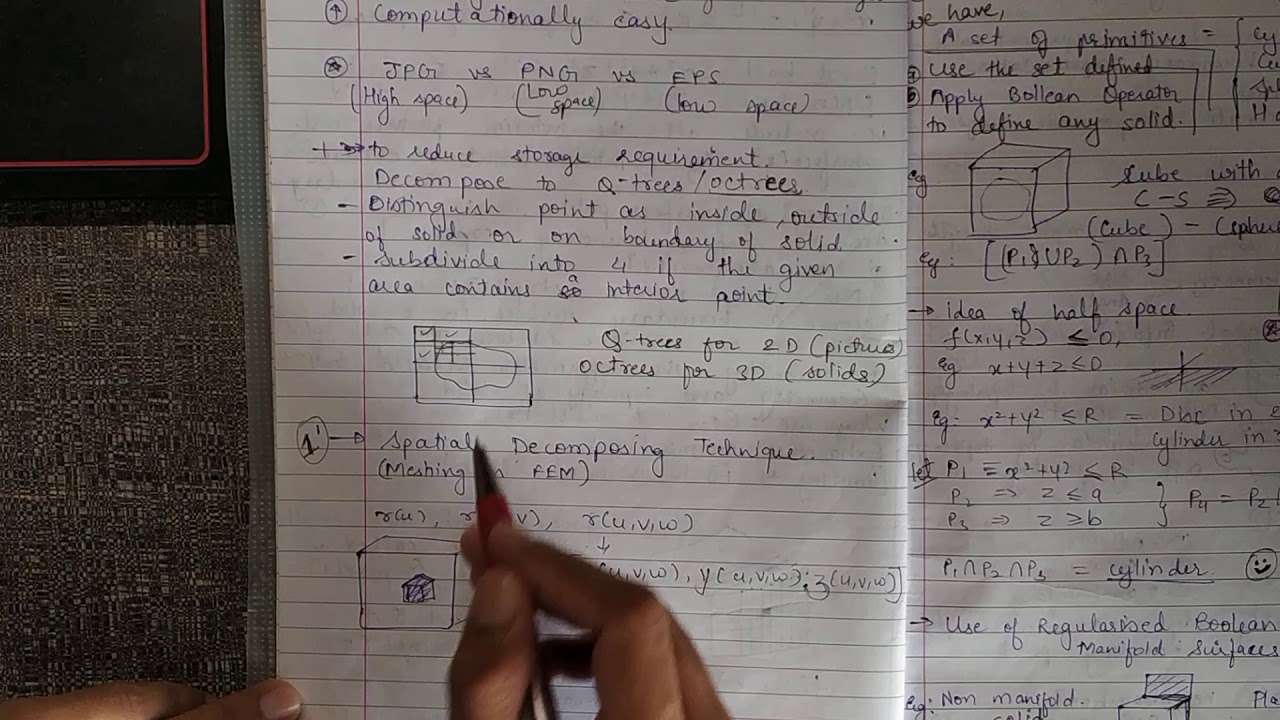 ① Computationally easy.
⊛ JPG vs PNG vs EPS
(High space) (Low space) (low space)
to reduce storage requirement.
Decompose to Q-trees/octrees
- Distinguish point as inside, outside
of solid or on boundary of solid
- Subdivide into 4 if the given
area contains a interior point.
Q-trees for 2D (pictures)
octrees for 3D (solids)
1' → Spatial Decomposing Technique.
(Meshing in FEM)
r(u), r(u,v), r(u,v,w)
↓
(u,v,w), y(u,v,w); z(u,v,w)]
we have,
A set of primitives =
Use the set defined
Apply Bollean Operator
to define any solid.
eg Cube with
C-S ⇒
(Cube) -
Eg: [(P1 U P2) ∩ P3]
→ idea of half space.
f(x,y,z) ≤ 0,
eg x+y+z ≤ 0
Eg: x²+y² ≤ R = Disc in
cylinder in
let P1 ≡ x²+y² ≤ R
P2 ⇒ z ≤ a
P3 ⇒ z ≥ b } P4 = P2
P1∩P2∩P3 = cylinder.
→ Use of Regularised Boolean
Manifold Surfaces
eg: Non manifold.
solid